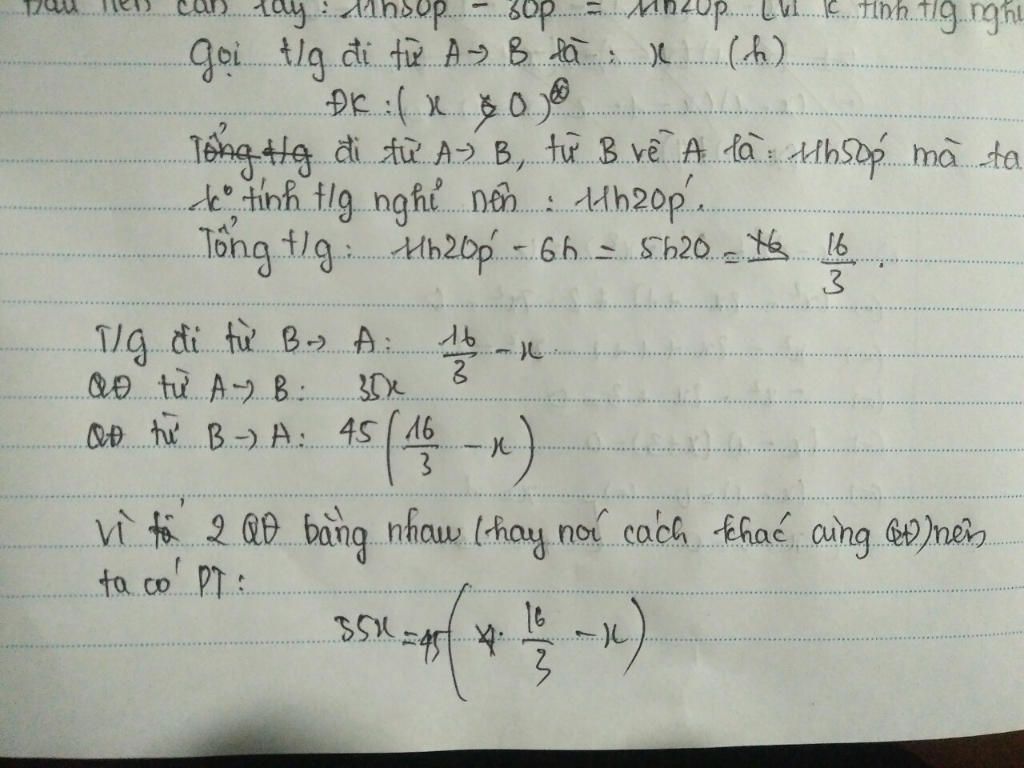 Đầu tiên cần lấy: 11h50p - 30p = 11h20p (vì k tính t/g nghỉ
Gọi t/g đi từ A→ B là : x (h)
ĐK :( x > 0 )
Tổng t/g đi từ A→ B, từ B về A là: 11h50p' mà ta
k° tính t/g nghỉ nên : 11h20p'.
Tổng t/g: 11h20p' - 6h = 5h20 = 16 16/3 .
T/g đi từ B→ A: 16/3 - x
QĐ từ A→ B: 35x
QĐ từ B→ A: 45 (16/3 - x)
Vì 2 QĐ bằng nhau (hay nói cách khác cùng QĐ) nên
ta có PT:
35x = 45 ( 16/3 - x)